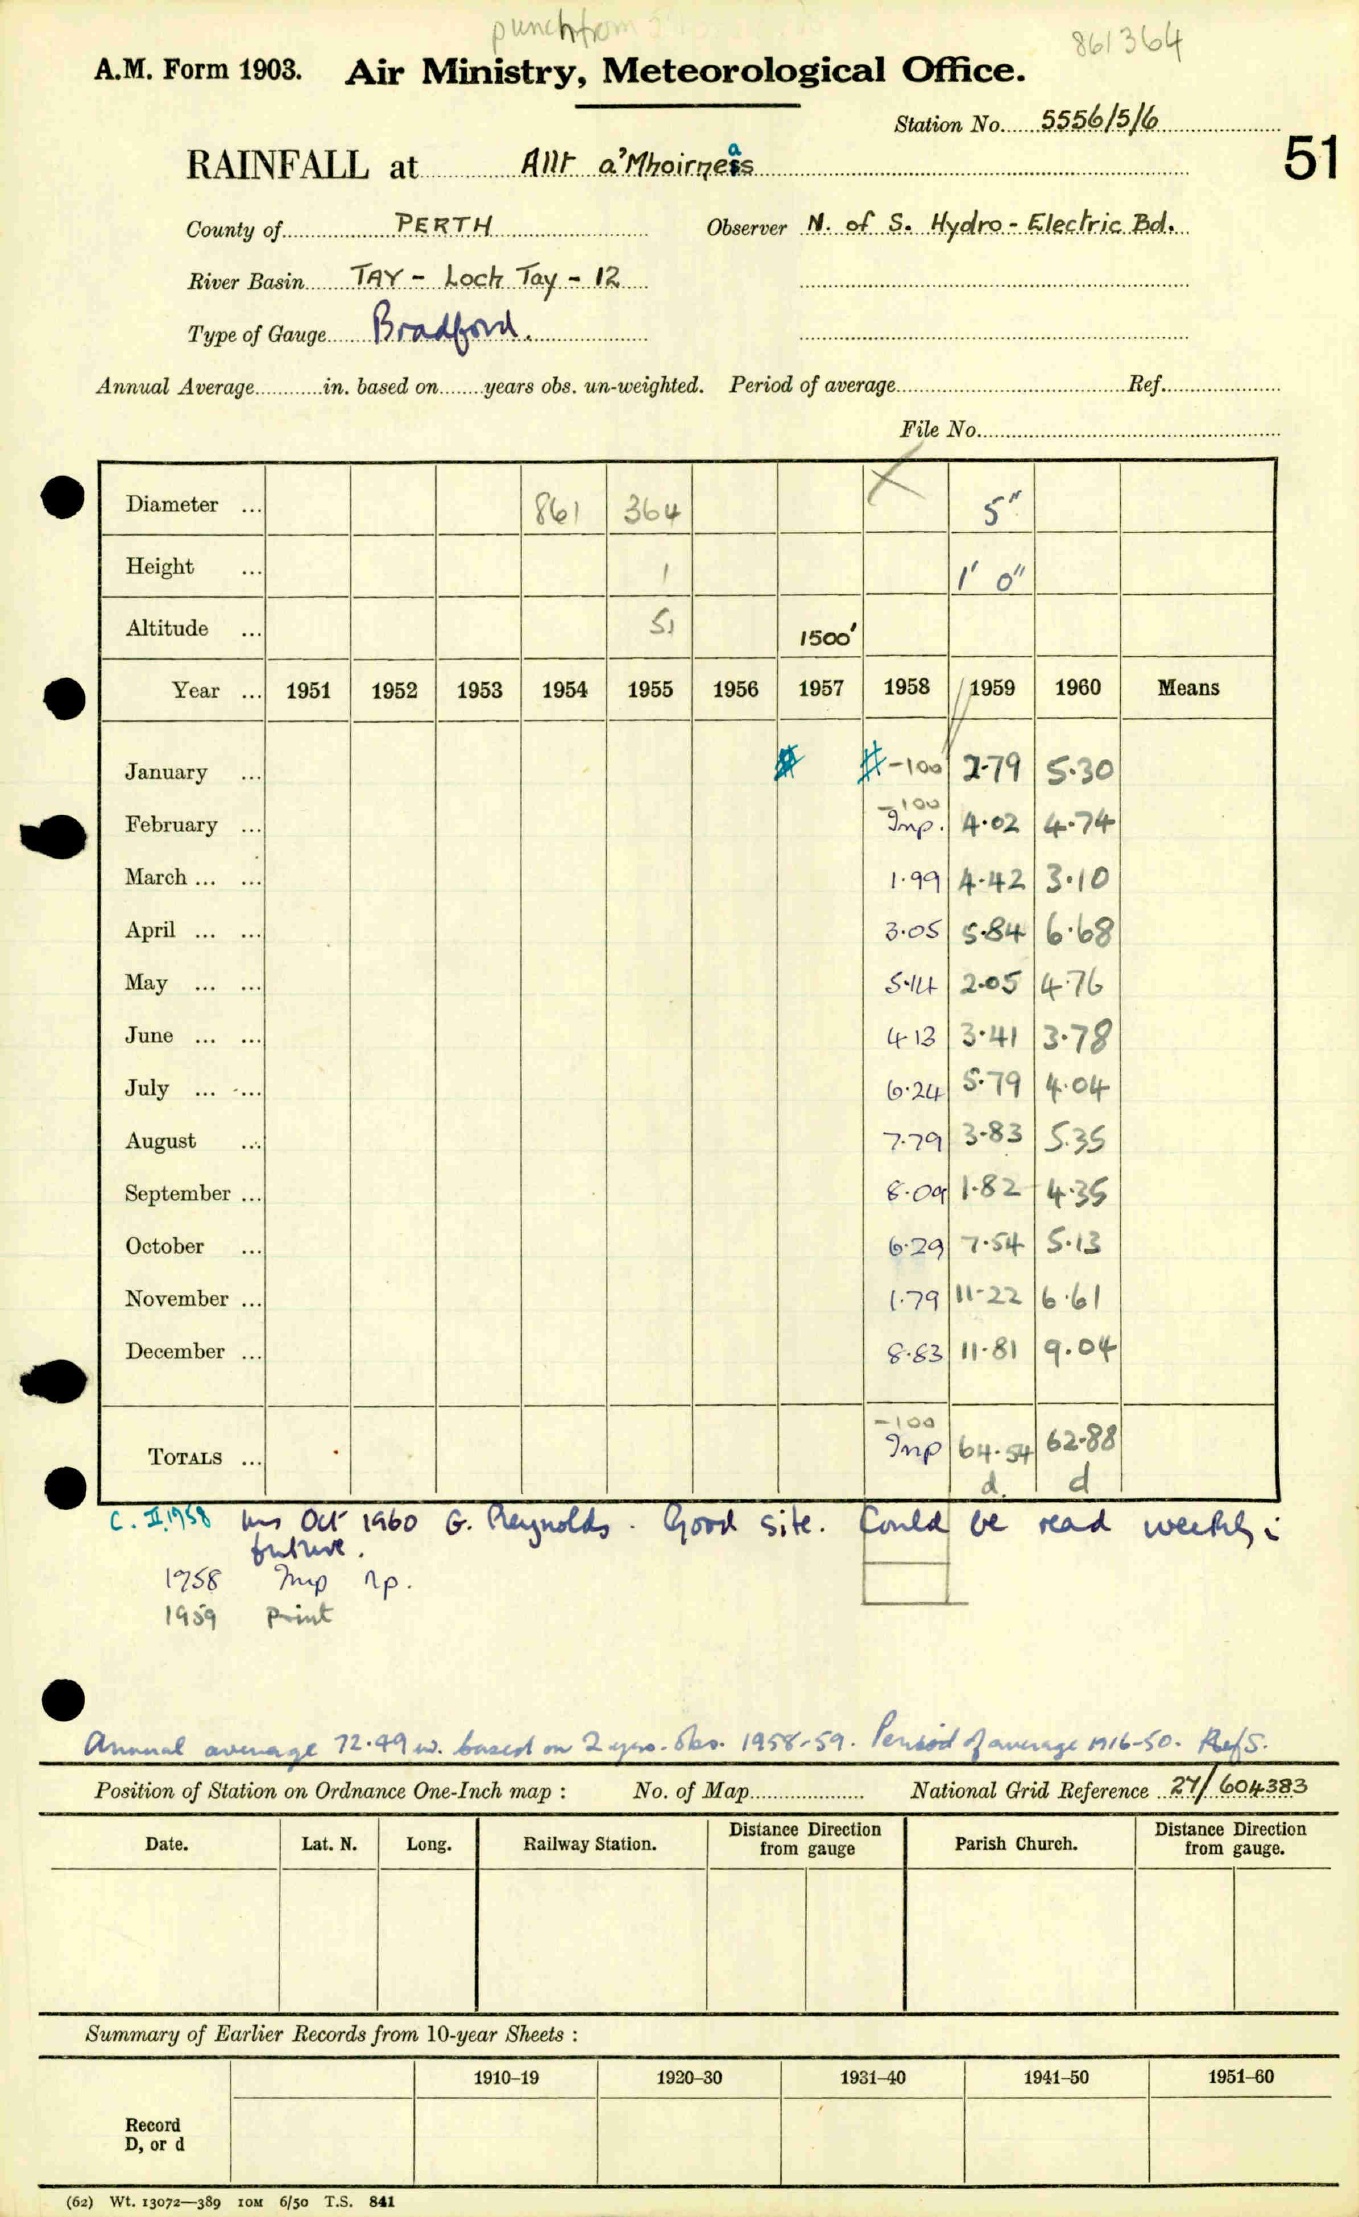 punch from
861364
A.M. Form 1903. Air Ministry, Meteorological Office.
Station No. 5556/5/6
51
RAINFALL at Allt a'Mhoirneas
County of PERTH Observer N. of S. Hydro-Electric Bd.
River Basin TAY - Loch Tay - 12
Type of Gauge Bradford.
Annual Average in. based on years obs. un-weighted. Period of average Ref.
File No.
Diameter ... 861 364 5"
Height ... 1 1' 0"
Altitude ... 51 1500'
Year ... 1951 1952 1953 1954 1955 1956 1957 1958 1959 1960 Means
January ... # # -100 2.79 5.30
February ... -100 Inp. 4.02 4.74
March ... ... 1.99 4.42 3.10
April ... ... 3.05 5.84 6.68
May ... ... 5.14 2.05 4.76
June ... ... 4.13 3.41 3.78
July ... ... 6.24 5.79 4.04
August ... 7.79 3.83 5.35
September ... 8.09 1.82 4.35
October ... 6.29 7.54 5.13
November ... 1.79 11.22 6.61
December ... 8.83 11.81 9.04
TOTALS ... -100 Inp 64.54 d. 62.88 d
C. II.1958 Ins Oct 1960 G. Reynolds. Good site. Could be read weekly i
future.
1958 Inp np.
1959 print
Annual average 72.49 in. based on 2 yrs. obs. 1958-59. Period of average 1916-50. Ref S.
Position of Station on Ordnance One-Inch map : No. of Map National Grid Reference 27/604383
Date. Lat. N. Long. Railway Station. Distance Direction from gauge Parish Church. Distance Direction from gauge.
Summary of Earlier Records from 10-year Sheets :
1910–19 1920–30 1931–40 1941–50 1951–60
Record
D, or d
(62) Wt. 13072—389 10M 6/50 T.S. 841